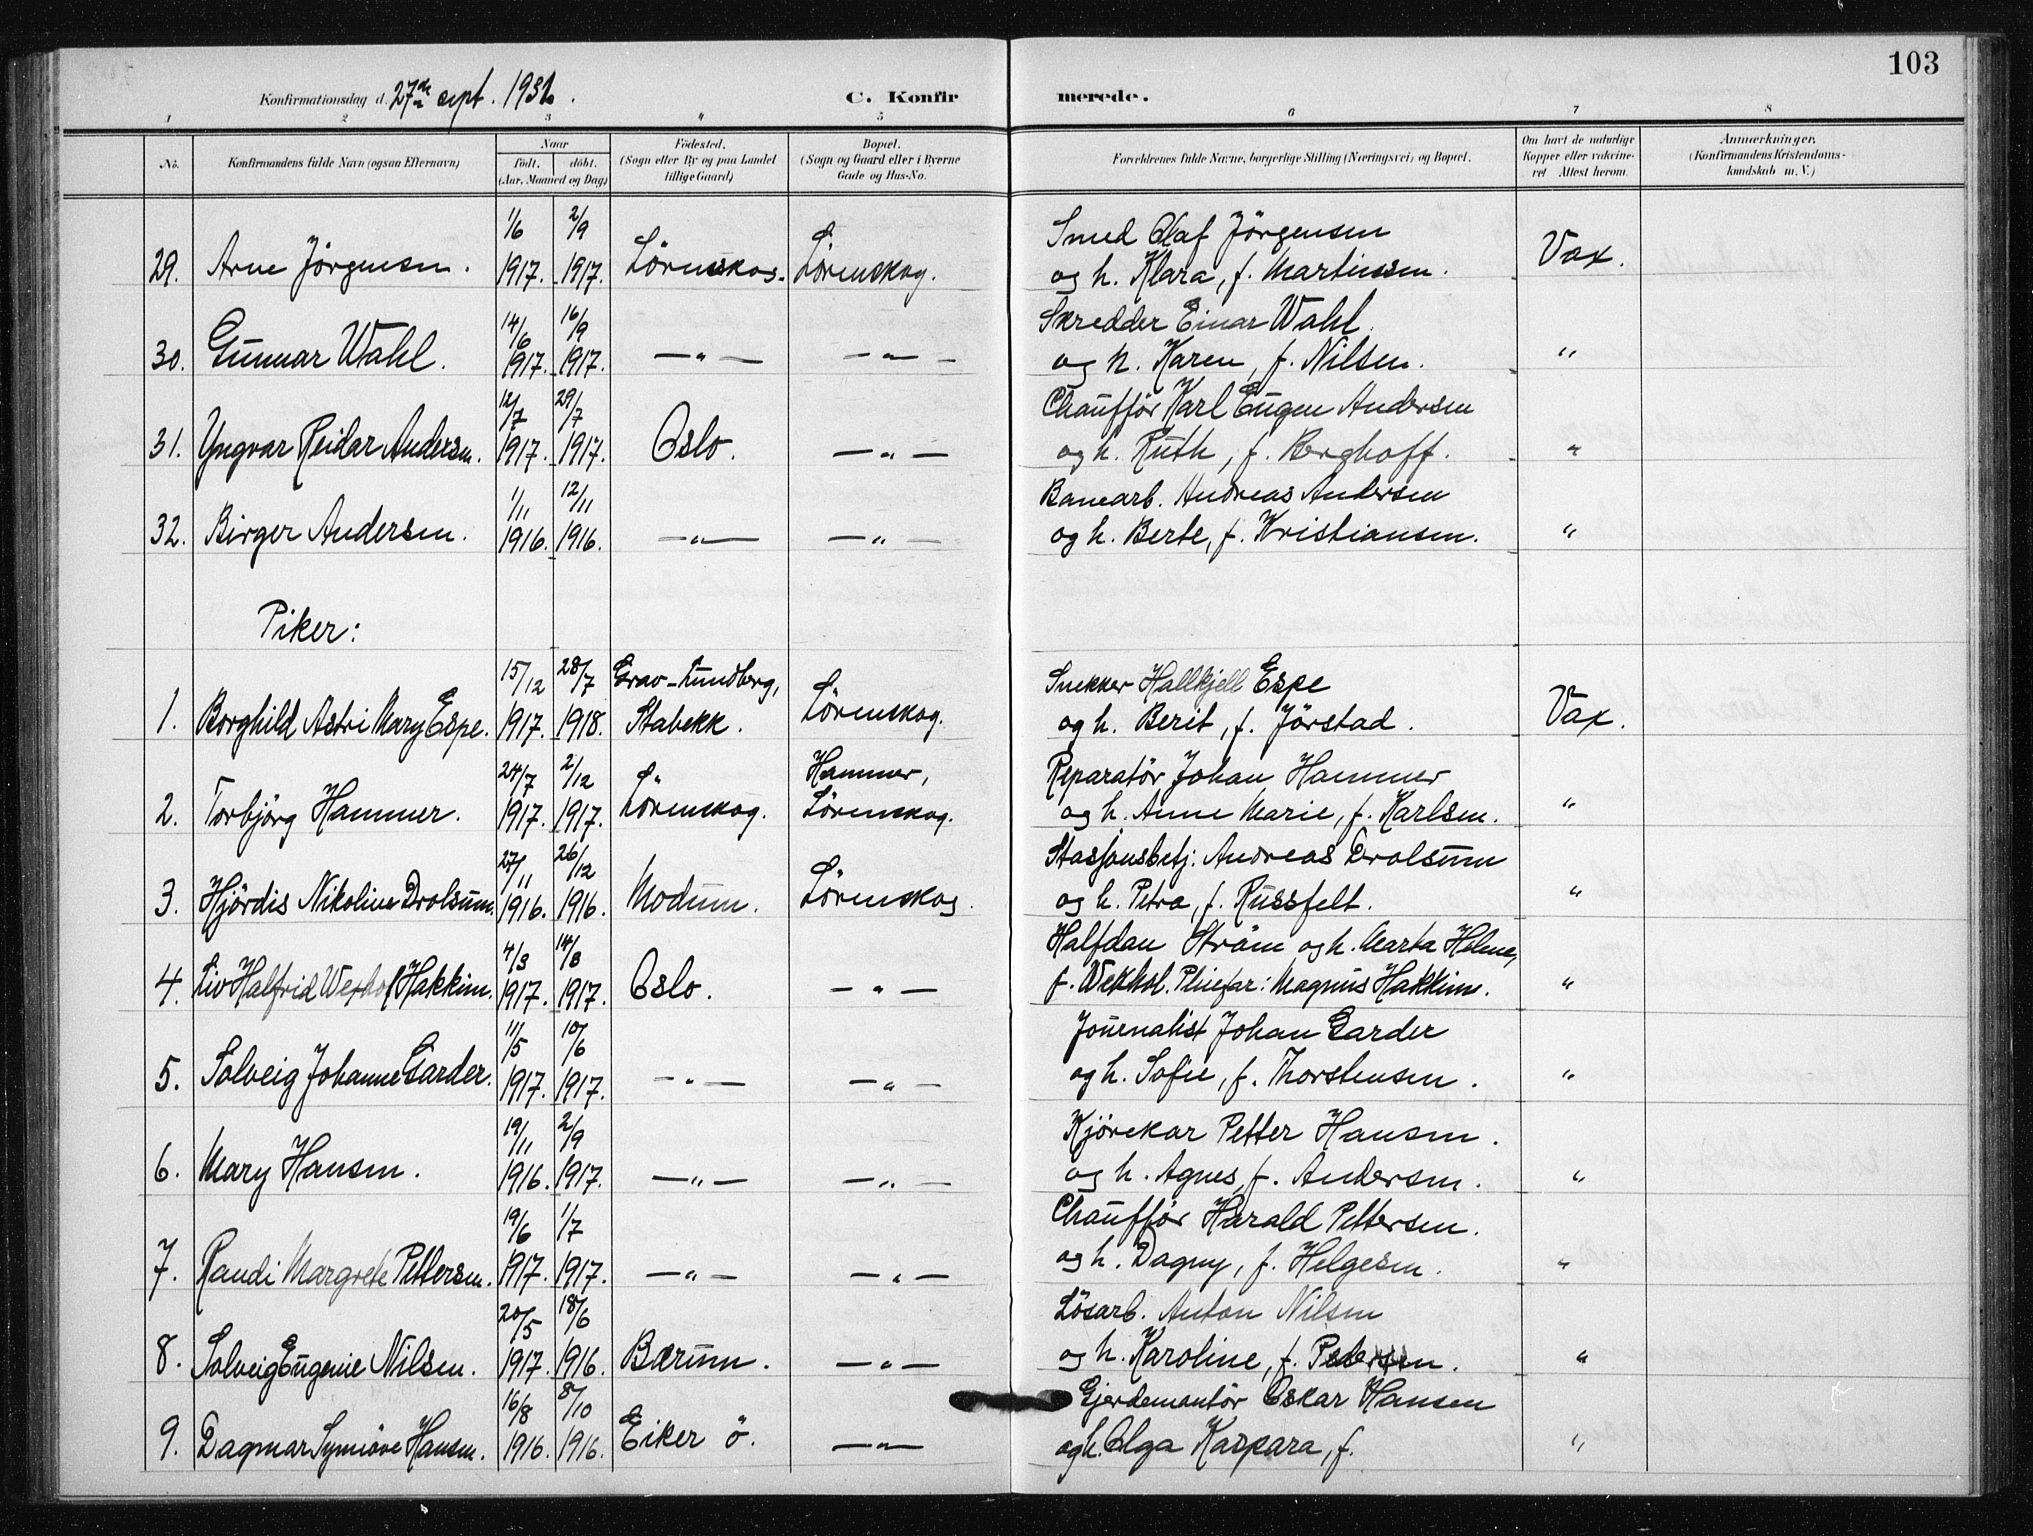 103
Konfirmationsdag d. 27de sept. 1931.
C. Konfirmerede.
1 2 3 4 5 6 7 8
No.
Konfirmandens fulde Navn (ogsaa Efternavn)
Naar
født. døbt.
(Aar, Maaned og Dag)
Fødested.
(Sogn eller By og paa Landet
tillige Gaard)
Bopæl.
(Sogn og Gaard eller i Byerne
Gade og Hus-No.
Forældrenes fulde Navne, borgerlige Stilling (Næringsvei) og Bopæl.
Om havt de naturlige
Kopper eller vakcine-
ret Attest herom.
Anmærkninger.
(Konfirmandens Kristendoms-
kundskab m. V.)
1/6 2/9 Smed Olaf Jörgensen
29. Arne Jörgensen. 1917. 1917. Lörenskog. Lörenskog. og h. Klara, f. Martinsen. Vax.
14/6 16/9 Skredder Einar Wahl.
30. Gunnar Wahl. 1917. 1917. — " — — " — og h. Karen, f. Nilsen. "
12/7 29/7 Chaufför Karl Eugen Andersen
31. Yngvar Reidar Andersen. 1917. 1917. Oslo. — " — og h. Ruth, f. Berghoff. "
1/11 12/11 Banearb. Andreas Andersen
32. Birger Andersen. 1916. 1916. — " — — " — og h. Berte, f. Kristiansen. "
Piker:
15/12 28/7 Grav-Lundberg, Snekker Hallkjell Espe
1. Borghild Astri Mary Espe. 1917. 1918. Stabekk. Lörenskog. og h. Berit, f. Jörstad. Vax.
24/7 2/12 Hammer, Reparatör Johan Hammer
2. Torbjörg Hammer. 1917. 1917. Lörenskog. Lörenskog. og h. Anne Marie, f. Karlsen. "
27/11 26/12 Stasjonsbetj. Andreas Drolsum
3. Hjördis Nikoline Drolsum. 1916. 1916. Modum. Lörenskog. og h. Petra, f. Russfelt. "
4/3 14/8 Halfdan Ström og h. Marta Helene,
4. Liv Halfrid Hakkim. 1917. 1917. Oslo. — " — f. Wexhol. Pleiefar: Magnus Hakkim. "
11/5 10/6 Journalist Johan Garder
5. Solveig Johanne Garder. 1917. 1917. — " — — " — og h. Sofie, f. Thorstensen. "
19/11 2/9 Kjörekar Petter Hansen.
6. Mary Hansen. 1916. 1917. — " — — " — og h. Agnes, f. Andersen. "
19/6 1/7 Chaufför Harald Pettersen.
7. Randi Margrete Pettersen. 1917. 1917. — " — — " — og h. Dagny, f. Helgesen. "
20/5 18/6 Lösarb. Anton Nilsen
8. Solveig Eugenie Nilsen. 1917. 1916. Bærum. — " — og h. Karoline, f. Pedersen. "
16/8 8/10 Gjerdemontör Oskar Hansen
9. Dagmar Synnöve Hansen. 1916. 1916. Eiker ö. — " — og h. Olga Kaspara, f. "